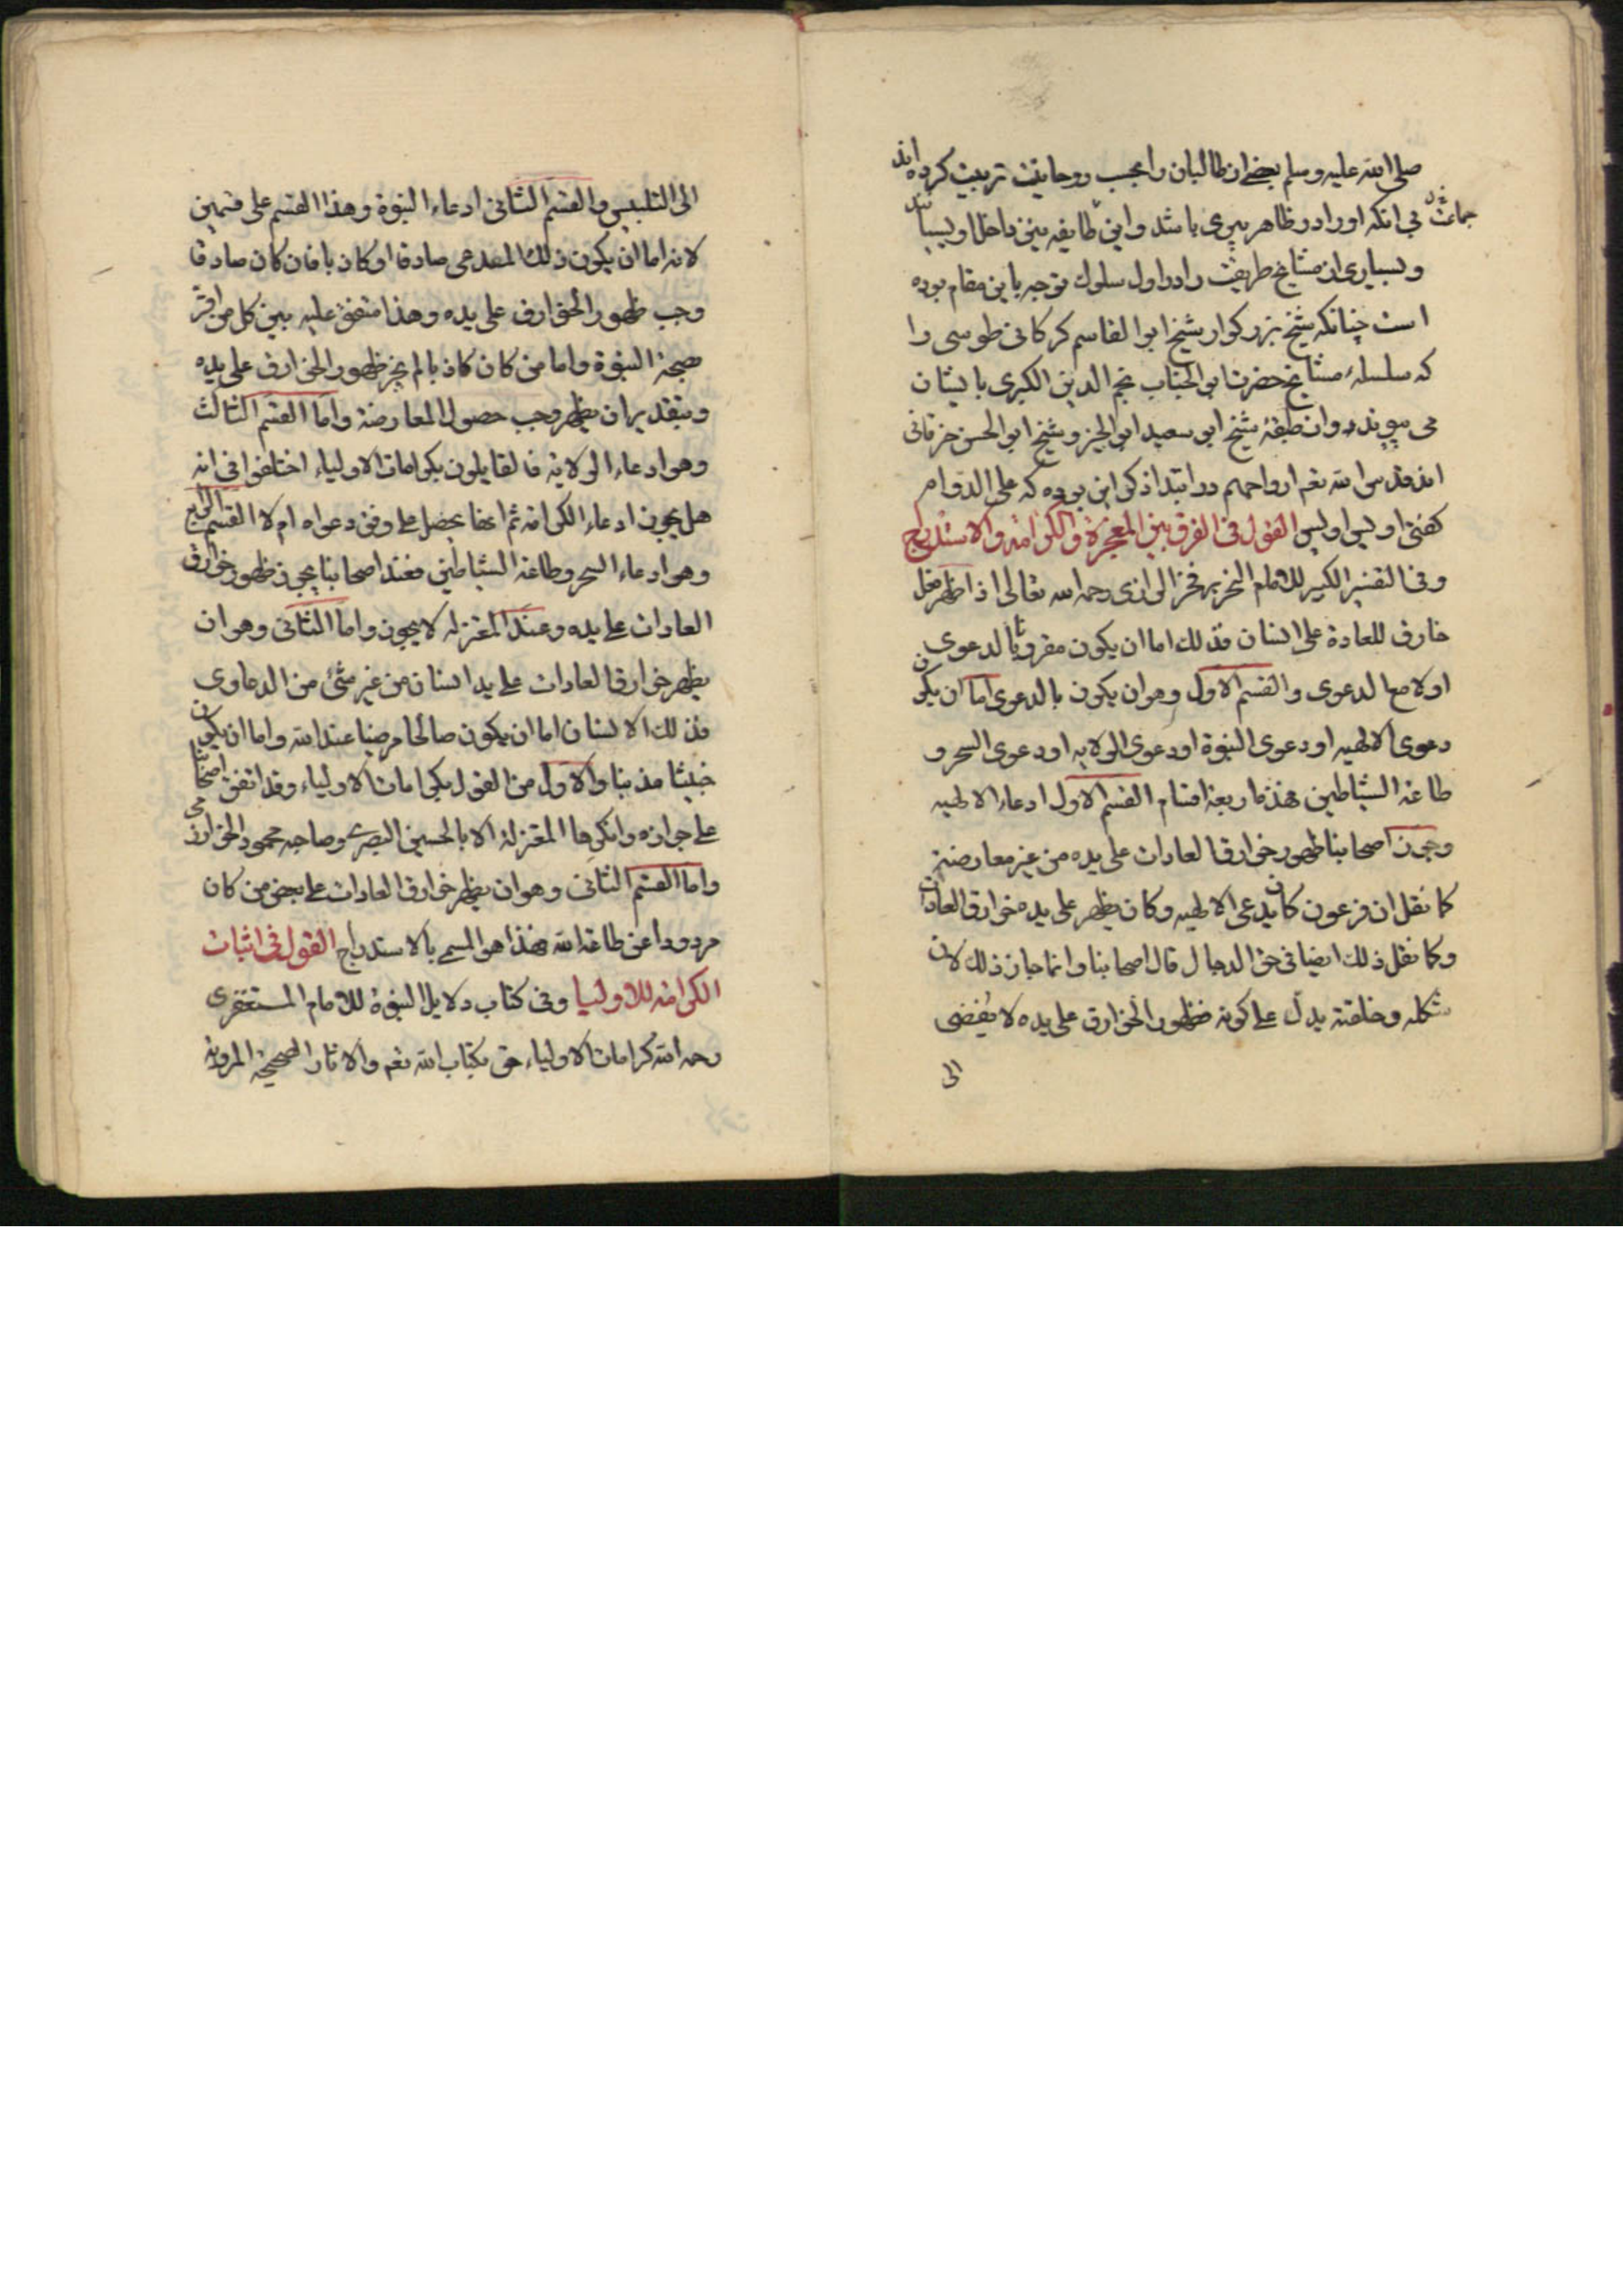 صلی الله علیه وسلم بعضی از طالبان را بحسب روحانیت تربیت کرده اند
بی آنکه او را در ظاهر پیری باشد واین طایفه نیز داخل اویسیانند
وبسیاری از مشایخ طریقت را در اول سلوک توجه باین مقام بوده
است چنانکه شیخ بزرکوار شیخ ابو القاسم کرکانی طوسی را
که سلسلهٔ مشایخ حضرت ابی الجناب نجم الدین الکبری بایشان
می پیوندد واز طبقهٔ شیخ ابو سعید ابی الخیر وشیخ ابو الحسن خرقانی
اند قدس الله تعم ارواحهم در ابتدا ذکر این بوده که علی الدوام
کفتی اویس اویس القول فی الفرق بین المعجزة والکرامة والاستدراج
وفی التفسیر الکبیر للامام النحریر فخر الرازی رحمه الله تعالی اذا ظهر فعل
خارق للعادة علی انسان فذلک اما ان یکون مقرونا بالدعوی
اولا مع الدعوی والقسم الاول وهو ان یکون بالدعوی اما ان یکون
دعوی الالهیه او دعوی النبوة او دعوی الولایه او دعوی السحر و
طاعة الشیاطین فهذه اربعة اقسام القسم الاول ادعاء الالهیه
وجوز اصحابنا ظهور خوارق العادات علی یده من غیر معارضة
کما نقل ان فرعون کان یدعی الالهیه وکان یظهر علی یده خوارق العادات
وکما نقل ذلک ایضا فی حق الدجال قال اصحابنا وانما جاز ذلک لان
شکله وخلقته یدل علی کونه فظهور الخوارق علی یده لا یفضی
الی
الی التلبیس والقسم الثانی ادعاء النبوة وهذا القسم علی قسمین
لانه اما ان یکون ذلک المدعی صادقا او کاذبا فان کان صادقا
وجب ظهور الخوارق علی یده وهذا متفق علیه بین کل من اقر
بصحة النبوة واما من کان کاذبا لم یجز ظهور الخوارق علی یده
وبتقدیر ان یظهر وجب حصول المعارضة واما القسم الثالث
وهو ادعاء الولایة فالقایلون بکرامات الاولیاء اختلفوا فی انه
هل یجوز ادعاء الکرامة ثم انها یحصل علی وفق دعواه ام لا القسم الرابع
وهو ادعاء السحر وطاعة الشیاطین فعند اصحابنا یجوز ظهور خوارق
العادات علی یده وعند المعتزله لا یجوز واما الثانی وهو ان
یظهر خوارق العادات علی ید انسان من غیر شئ من الدعاوی
فذلک الانسان اما ان یکون صالحا مرضیا عند الله واما ان یکون
خبیثا مذنبا والاول من القول بکرامات الاولیاء وقد اتفق اصحابنا
علی جوازه وانکرها المعتزلة الا ابا الحسین البصری وصاحبه محمود الخوارزمی
واما القسم الثانی وهو ان یظهر خوارق العادات علی بعض من کان
مردودا عن طاعة الله فهذا هو المسمی بالاستدراج القول فی اثبات
الکرامة للاولیا وفی کتاب دلایل النبوة للامام المستغفری
رحمه الله کرامات الاولیاء حق بکتاب الله تعم والاثار الصحیحة المرویة